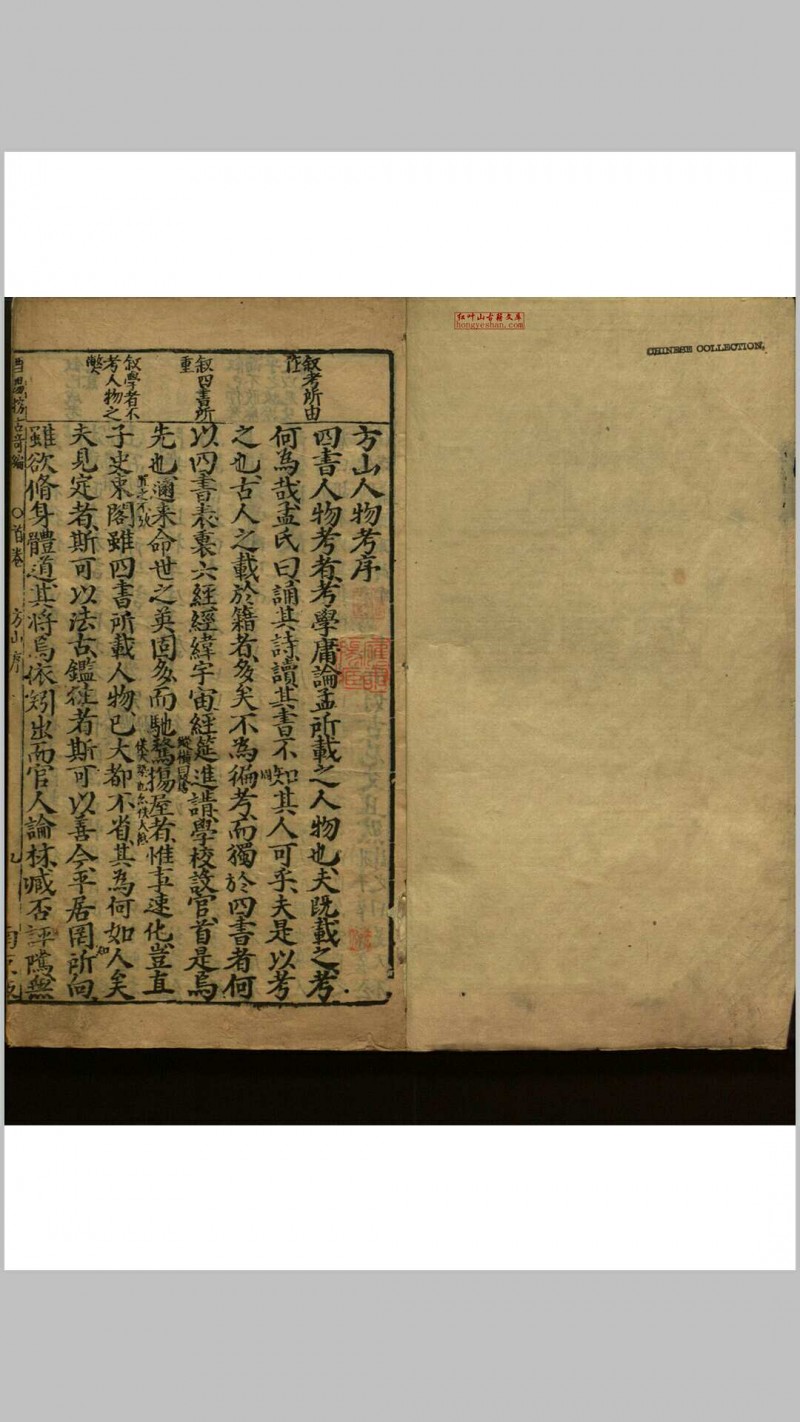 红叶山古籍文库
hongyeshan.com
CHINESE COLLECTION,
叙考所由
叙四書所
重
叙學者不
考人物之
弊
方山人物考序
四書人物考者考學庸論孟所載之人物也夫既載之考
何為哉孟氏曰誦其詩讀其書不知其人可乎夫是以考
之也古人之載於籍者多矣不為徧考而獨於四書者何
以四書表裏六經經緯宇宙經筵進講學校設官首是焉
先也邇来命世之英固多而馳騖揚厲者惟事速化豈直
子史束閣雖四書所載人物已大都不省其為何如人矣
夫見定者斯可以法古鑑往者斯可以善今平居罔所向
雖欲脩身體道其將焉依矧出而官人論材臧否評隲無
首卷 方山序